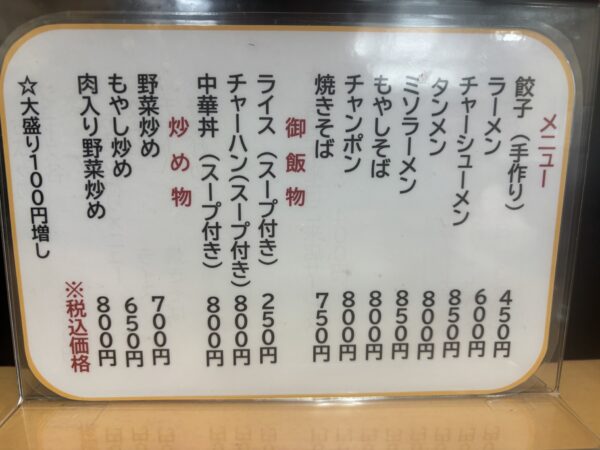 メニュー
餃子（手作り） 450円
ラーメン 600円
チャーシューメン 850円
タンメン 800円
ミソラーメン 850円
もやしそば 800円
チャンポン 800円
焼きそば 750円
御飯物
ライス（スープ付き） 250円
チャーハン（スープ付き） 800円
中華丼（スープ付き） 800円
炒め物
野菜炒め 700円
もやし炒め 650円
肉入り野菜炒め 800円
※税込価格
☆大盛り100円増し